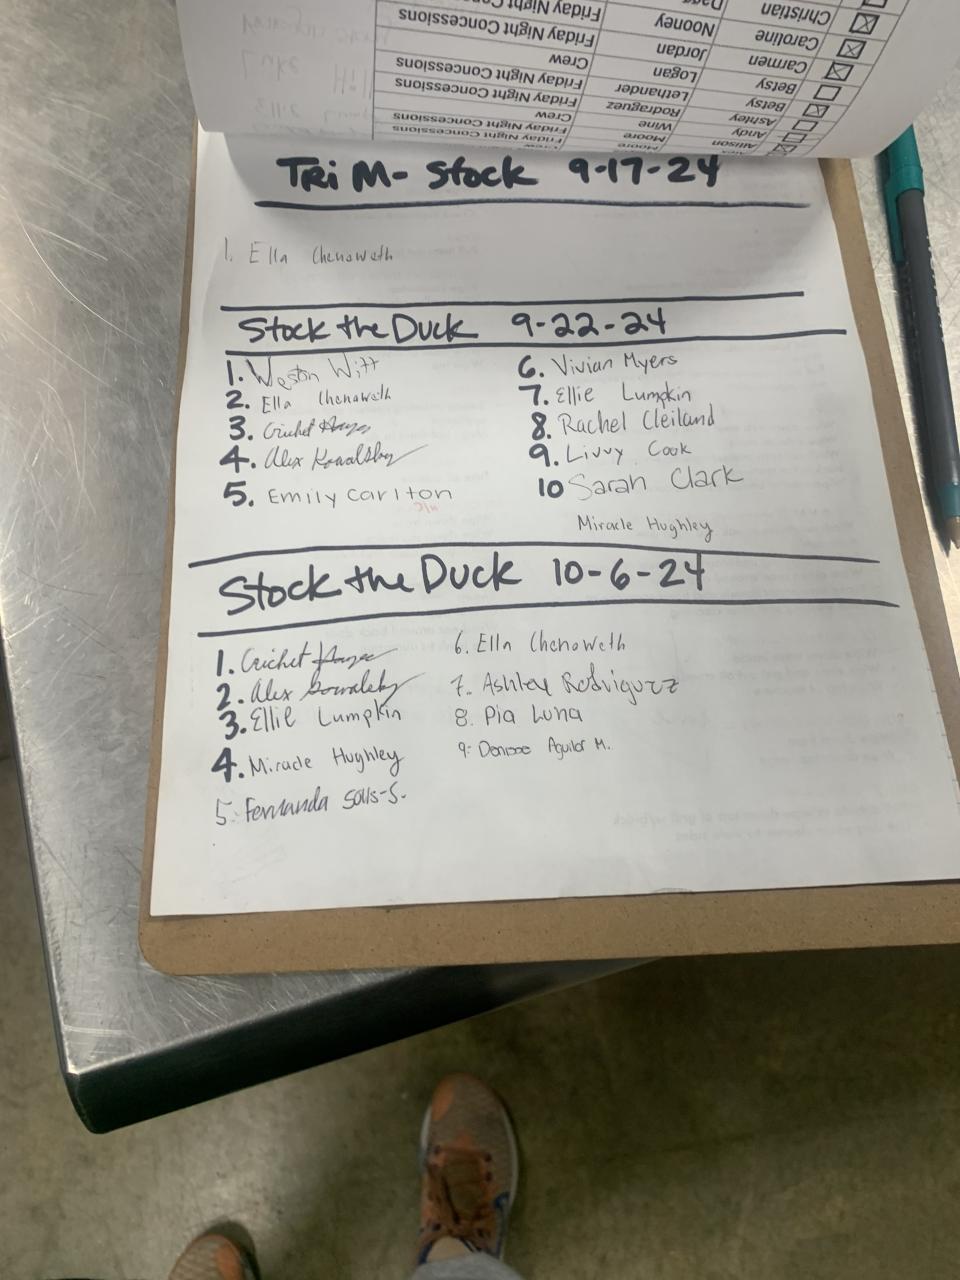 Christian
Caroline
Nooney
Friday Night Concessions
Carmen
Jordan
Friday Night Concessions
Betsy
Logan
Crew
Betsy
Lethander
Friday Night Concessions
Ashley
Rodraguez
Friday Night Concessions
Andy
Wine
Crew
Allison
Moore
Friday Night Concessions
Moore
Tri M- Stock 9-17-24
1. Ella Chenoweth
Stock the Duck 9-22-24
1. Weston Witt
2. Ella Chenoweth
3. Crichet Hayes
4. Alex Kowalsky
5. Emily Carlton
N/C
6. Vivian Myers
7. Ellie Lumpkin
8. Rachel Cleiland
9. Livvy Cook
10 Sarah Clark
Miracle Hughley
Stock the Duck 10-6-24
1. Crichet Hayes
2. Alex Kowalsky
3. Ellie Lumpkin
4. Miracle Hughley
5. Fernanda Solis-S.
6. Ella Chenoweth
7. Ashley Rodriguez
8. Pia Luna
9. Denisse Aguilar M.